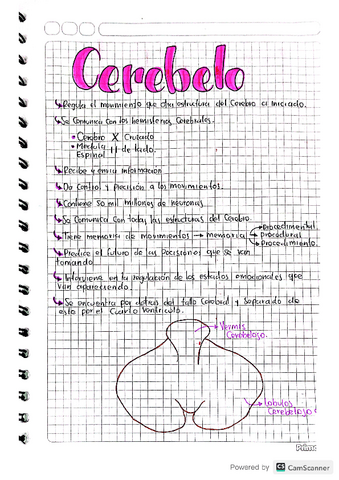 Cerebelo
Regula el movimiento que otra estructura del Cerebro a iniciado.
Se comunica con los hemisferios Cerebrales.
• Cerebro X Cruzado
• Médula II de lado.
Espinal
Recibe y envia información
Da control y Precisión a los movimientos.
Contiene 50 mil millones de neuronas.
Se Comunica con todas las estructuras del Cerebro.
Tiene memoria de movimientos → memoria
Procedimental.
Proceduras
Procedimiento.
Predice el futuro de las Decisiones que se van
tomando.
Interviene en la regulación de los estados emocionales que
van apareciendo.
Se encuentra por detras del tallo Cerebral y separado de
esto por el Cuarto Ventriculo.
Vermis
Cerebeloso.
Lobulos
Cerebeloso
Powered by CS CamScanner